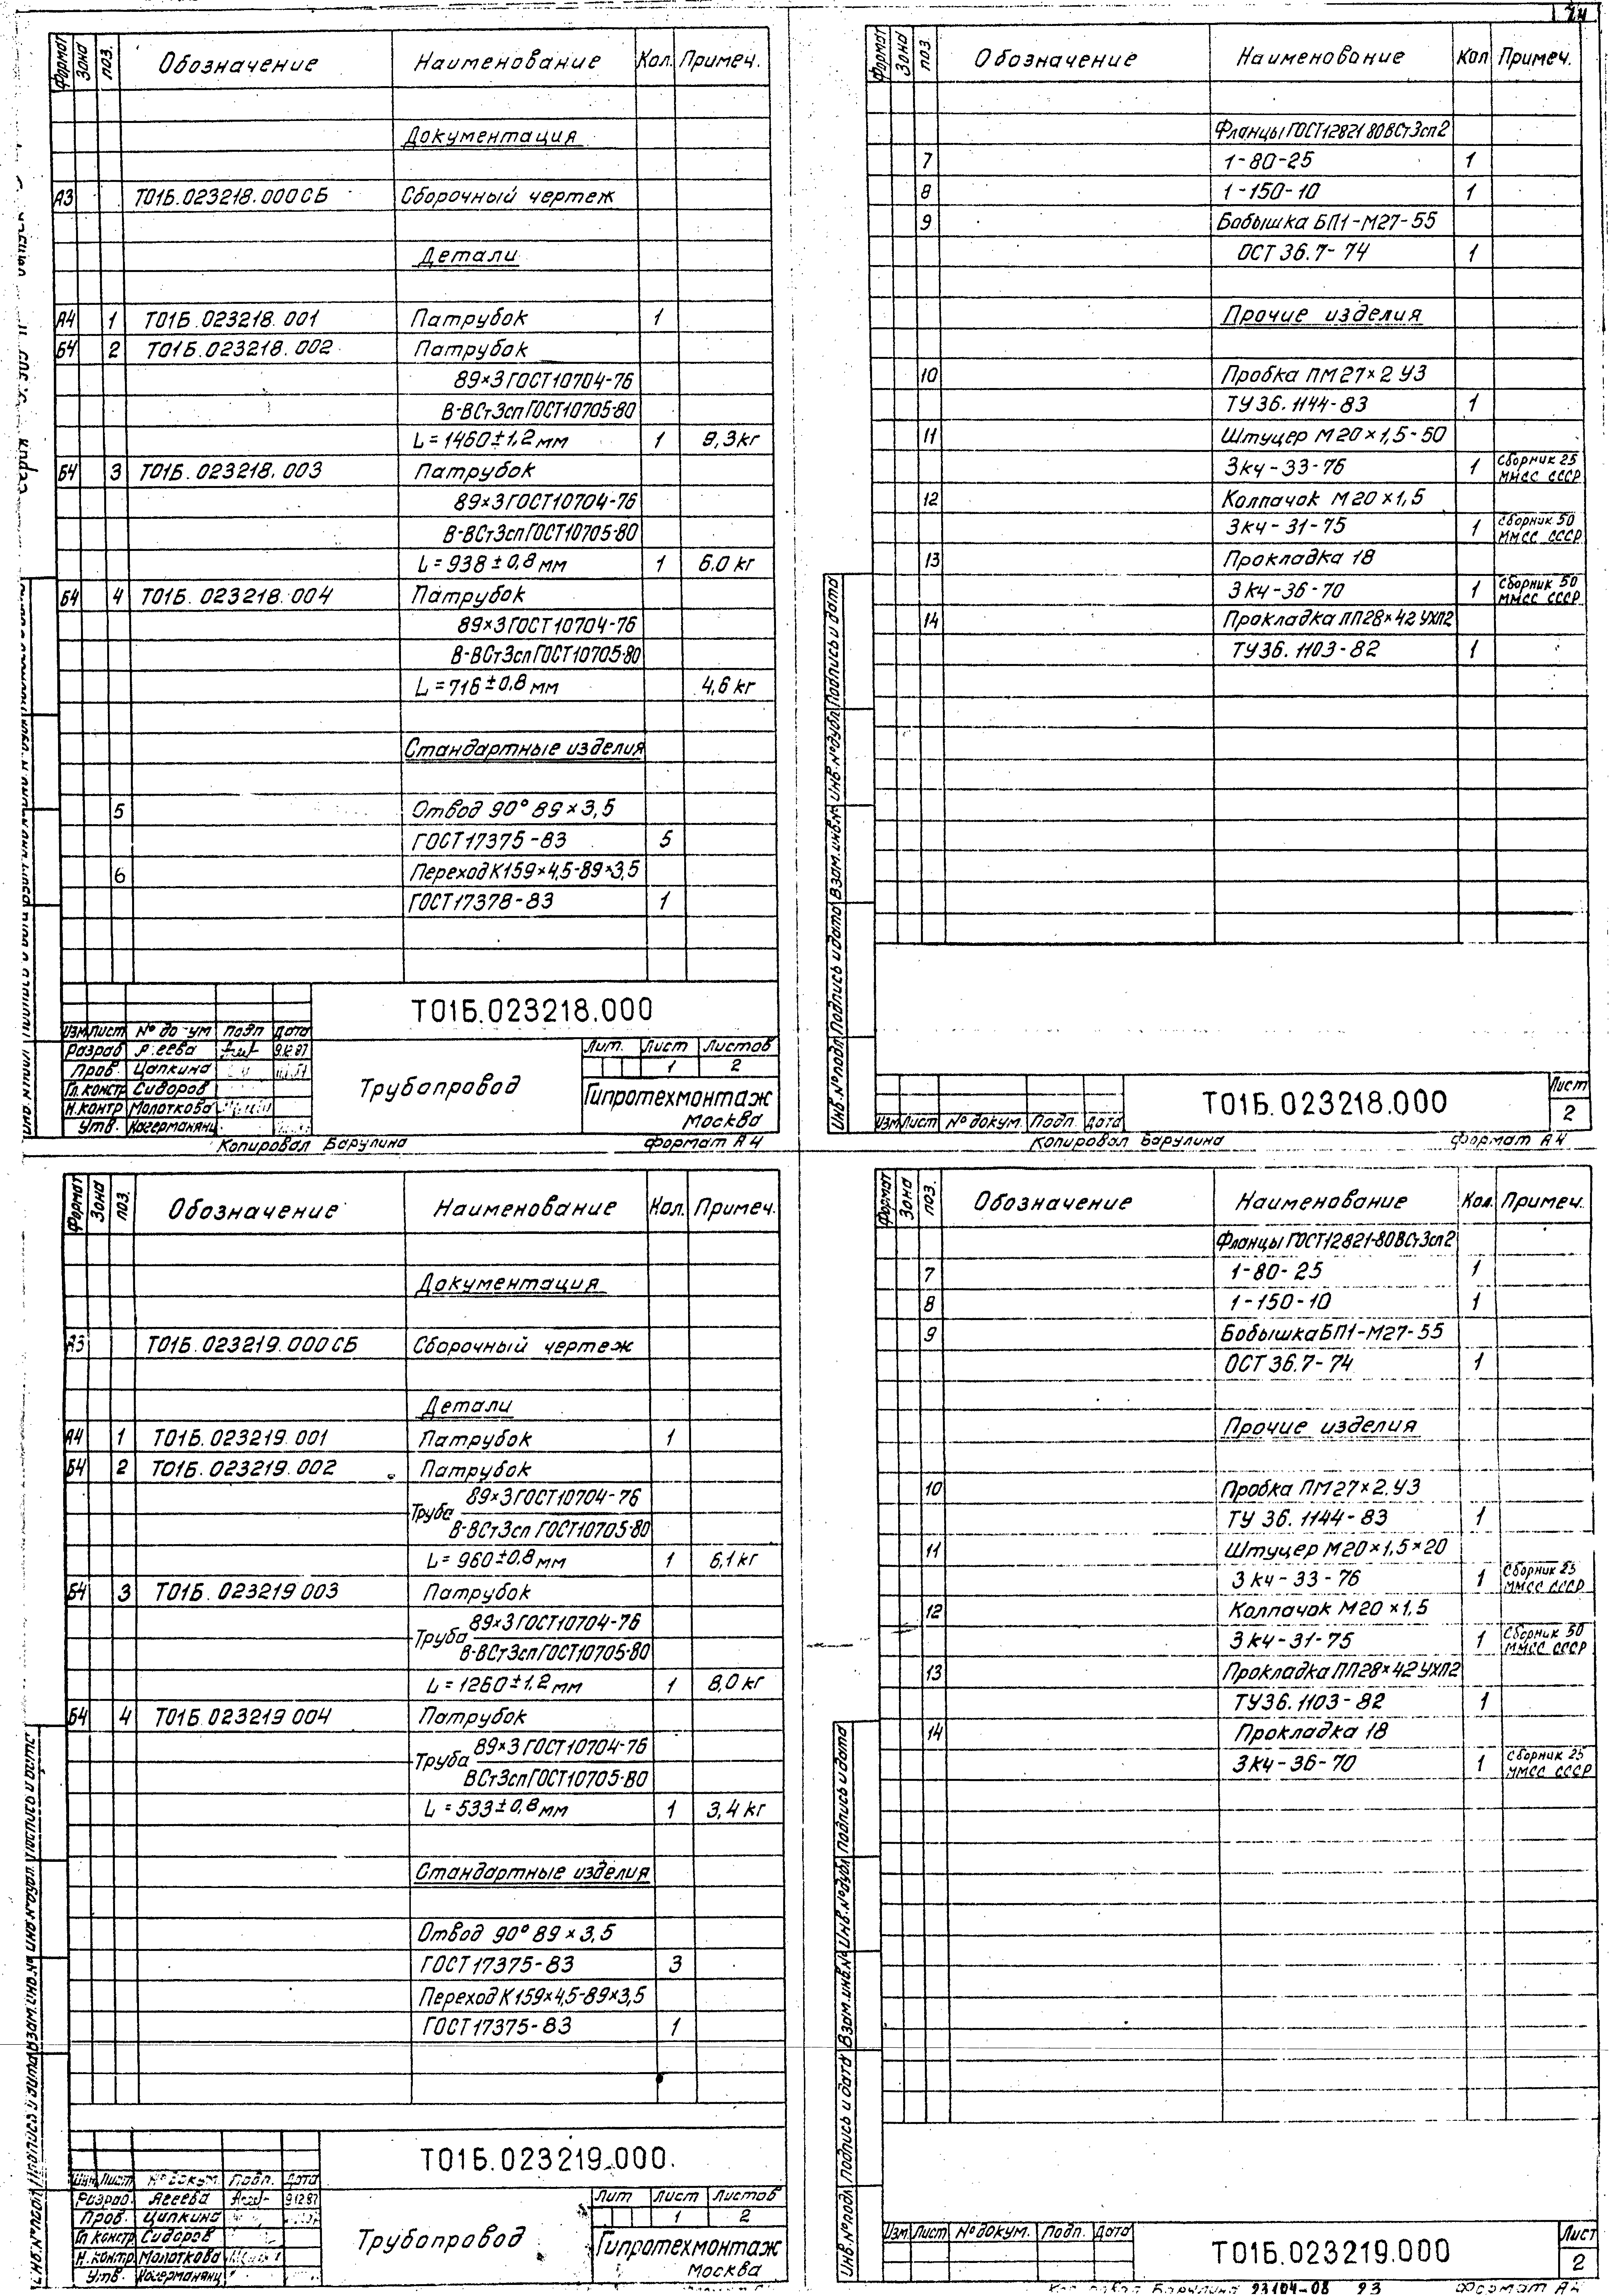 24
Формат Зона поз. Обозначение Наименование Кол. Примеч.
Документация
А3 Т01Б.023218.000СБ Сборочный чертеж
Детали
А4 1 Т01Б.023218.001 Патрубок 1
Б4 2 Т01Б.023218.002 Патрубок
89×3 ГОСТ10704-76
В-ВСт3сп ГОСТ10705-80
L=1460±1,2 мм 1 9,3кг
Б4 3 Т01Б.023218.003 Патрубок
89×3 ГОСТ10704-76
В-ВСт3сп ГОСТ10705-80
L=938±0,8 мм 1 6.0 кг
Б4 4 Т01Б.023218.004 Патрубок
89×3 ГОСТ10704-76
В-ВСт3сп ГОСТ10705-80
L=716±0,8 мм 4,6 кг
Стандартные изделия
5 Отвод 90° 89×3,5
ГОСТ17375-83 5
6 Переход К159×4,5-89×3,5
ГОСТ17378-83 1
Т01Б.023218.000
Изм Лист Подп Дата
Разраб 9.12.87
Пров. Цапкина
Гл.констр Сидоров
Н.контр Молоткова
Утв. Кагерманянц
Трубопровод
Лит. Лист Листов
1 2
Гипротехмонтаж
Москва
Копировал Барулина Формат А4
Формат Зона поз. Обозначение Наименование Кол Примеч.
Фланцы ГОСТ12821 80 ВСт3сп2
7 1-80-25 1
8 1-150-10 1
9 Бобышка БП1-М27-55
ОСТ 36.7-74 1
Прочие изделия
10 Пробка ПМ27×2 У3
ТУ36.1144-83 1
11 Штуцер М20×1,5-50
3кч-33-76 1 Сборник 25
ММСС СССР
12 Колпачок М20×1,5
3кч-31-75 1 Сборник 50
ММСС СССР
13 Прокладка 18
3кч-36-70 1 Сборник 50
ММСС СССР
14 Прокладка ПП28×42 УХЛ2
ТУ36.1103-82 1
Инв.№подл Подпись и дата Взам.инв.№ Инв.№дубл. Подпись и дата
Изм Лист №докум. Подп. Дата
Т01Б.023218.000
Лист
2
Копировал Барулина Формат А4
Формат Зона поз. Обозначение Наименование Кол. Примеч.
Документация
А3 Т01Б.023219.000СБ Сборочный чертеж
Детали
А4 1 Т01Б.023219.001 Патрубок 1
Б4 2 Т01Б.023219.002 Патрубок
Труба 89×3 ГОСТ10704-76
В-ВСт3сп ГОСТ10705-80
L=960±0,8 мм 1 6,1кг
Б4 3 Т01Б.023219 003 Патрубок
Труба 89×3 ГОСТ10704-76
В-ВСт3сп ГОСТ10705-80
L=1260±1,2 мм 1 8,0 кг
Б4 4 Т01Б.023219 004 Патрубок
Труба 89×3 ГОСТ10704-76
ВСт3сп ГОСТ10705-80
L=533±0,8 мм 1 3,4 кг
Стандартные изделия
Отвод 90° 89×3,5
ГОСТ17375-83 3
Переход К159×4,5-89×3,5
ГОСТ17375-83 1
Т01Б.023219.000.
Изм Лист №докум. Подп. Дата
Разраб. Агеева 9.12.87
Пров. Цапкина
Гл констр. Сидоров
Н.контр. Молоткова
Утв. Кагерманянц
Трубопровод
Лит Лист Листов
1 2
Гипротехмонтаж
Москва
Формат Зона поз. Обозначение Наименование Кол. Примеч.
Фланцы ГОСТ12821-80 ВСт3сп2
7 1-80-25 1
8 1-150-10 1
9 Бобышка БП1-М27-55
ОСТ 36.7-74 1
Прочие изделия
10 Пробка ПМ27×2.У3
ТУ 36.1144-83 1
11 Штуцер М20×1,5×20
3кч-33-76 1 Сборник 25
ММСС СССР
12 Колпачок М20×1,5
3кч-31-75 1 Сборник 50
ММСС СССР
13 Прокладка ПП28×42 УХЛ2
ТУ36.1103-82 1
14 Прокладка 18
3кч-36-70 1 Сборник 25
ММСС СССР
Инв.№подл Подпись и дата Взам.инв.№ Инв.№дубл Подпись и дата
Изм Лист №докум. Подп. Дата
Т01Б.023219.000
Лист
2
Барулина 23104-08 23 Формат А4